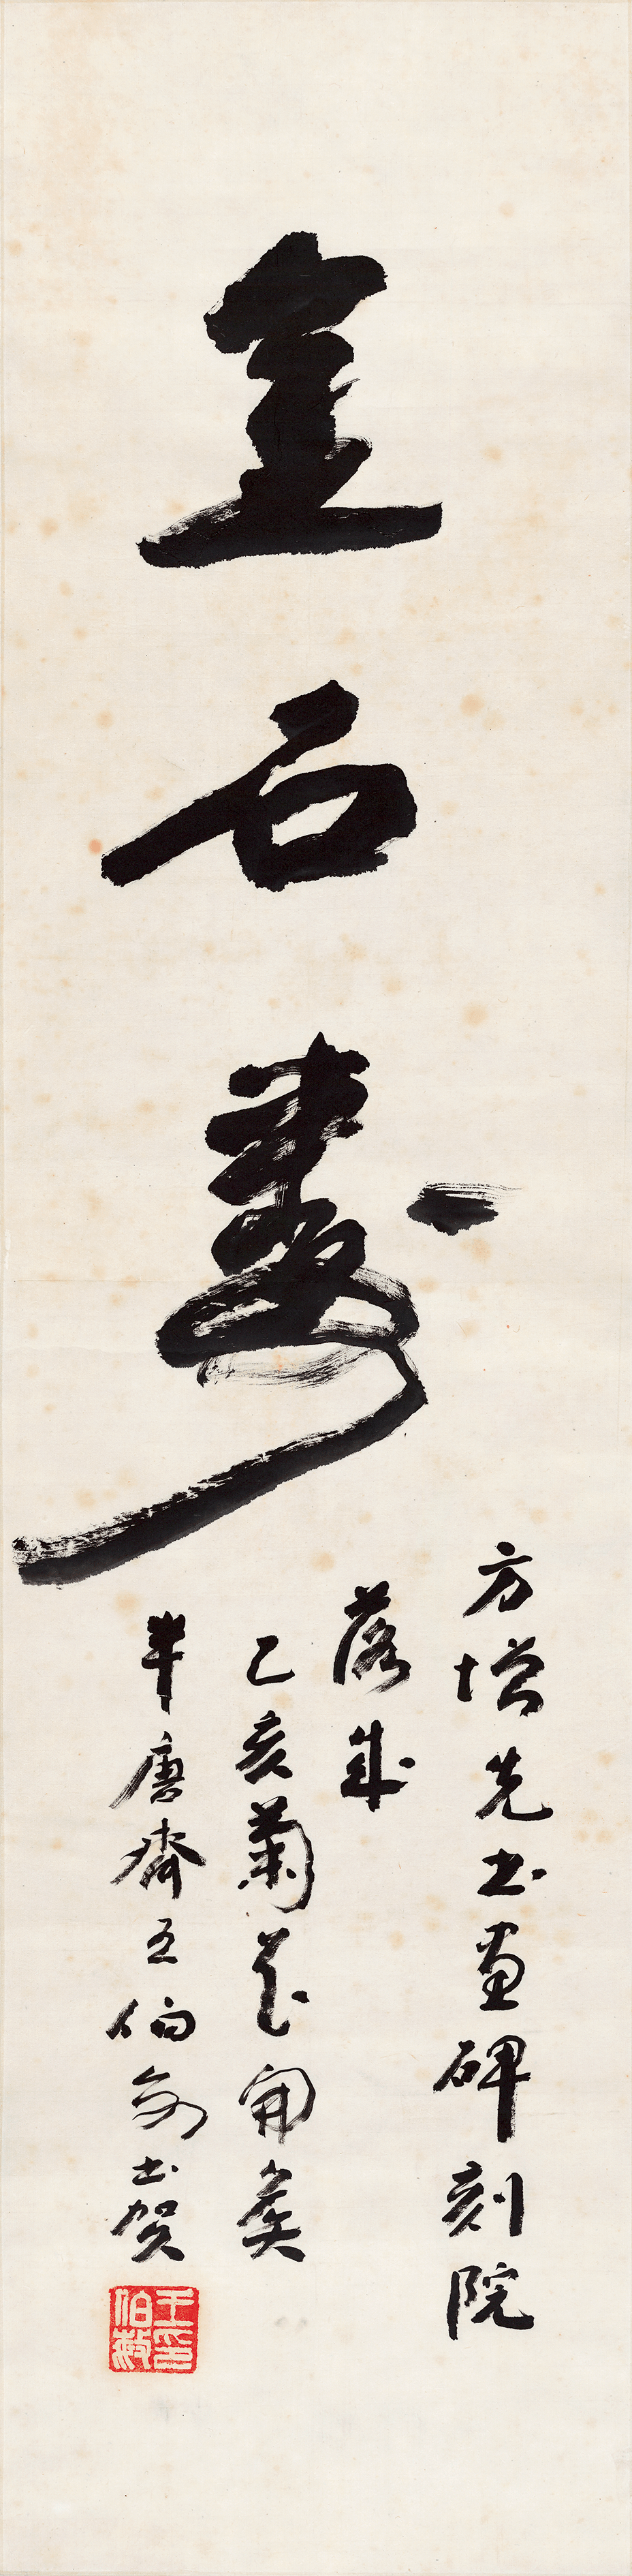 金石寿
方增先书画碑刻院
落成
乙亥菊花开矣
半唐斋王伯敏书贺
王伯敏印